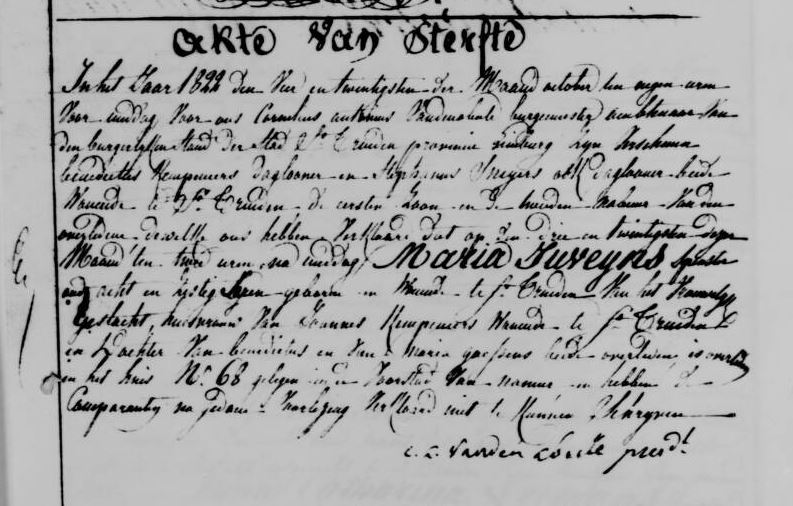 akte van sterfte
In het Jaar 1822 den vier en twintigsten der Maand october ten negen uren
voor middag voor ons Cornelius antonius vandenabeele burgemeester ambtenaar van
den burgerlyken stand der stad St Truiden provincie Limburg zyn verschenen
benedictus Kempeneers daglooner en Stephanus Sneyers ook daglooner beide
Woonende te St Truiden de eersten zoon en de tweeden nabuur van den
overledene dewelke ons hebben verklaard dat op den drie en twintigsten dezer
Maand ten twee uren na middag, Maria Iuveyns spinster
oud acht en zestig Jaren geboren en Woonende te St Truiden van het vrouwelyk
geslacht, huisvrouw van Joannes Kempeneers Woonende te St Truiden
en dochter van benedictus en van Maria goessens beide overleden is overleden
in het huis No 68 gelegen in de voorstad van namur en hebben de
Comparanten na gedane voorlezing verklaard niet te kunnen schryven